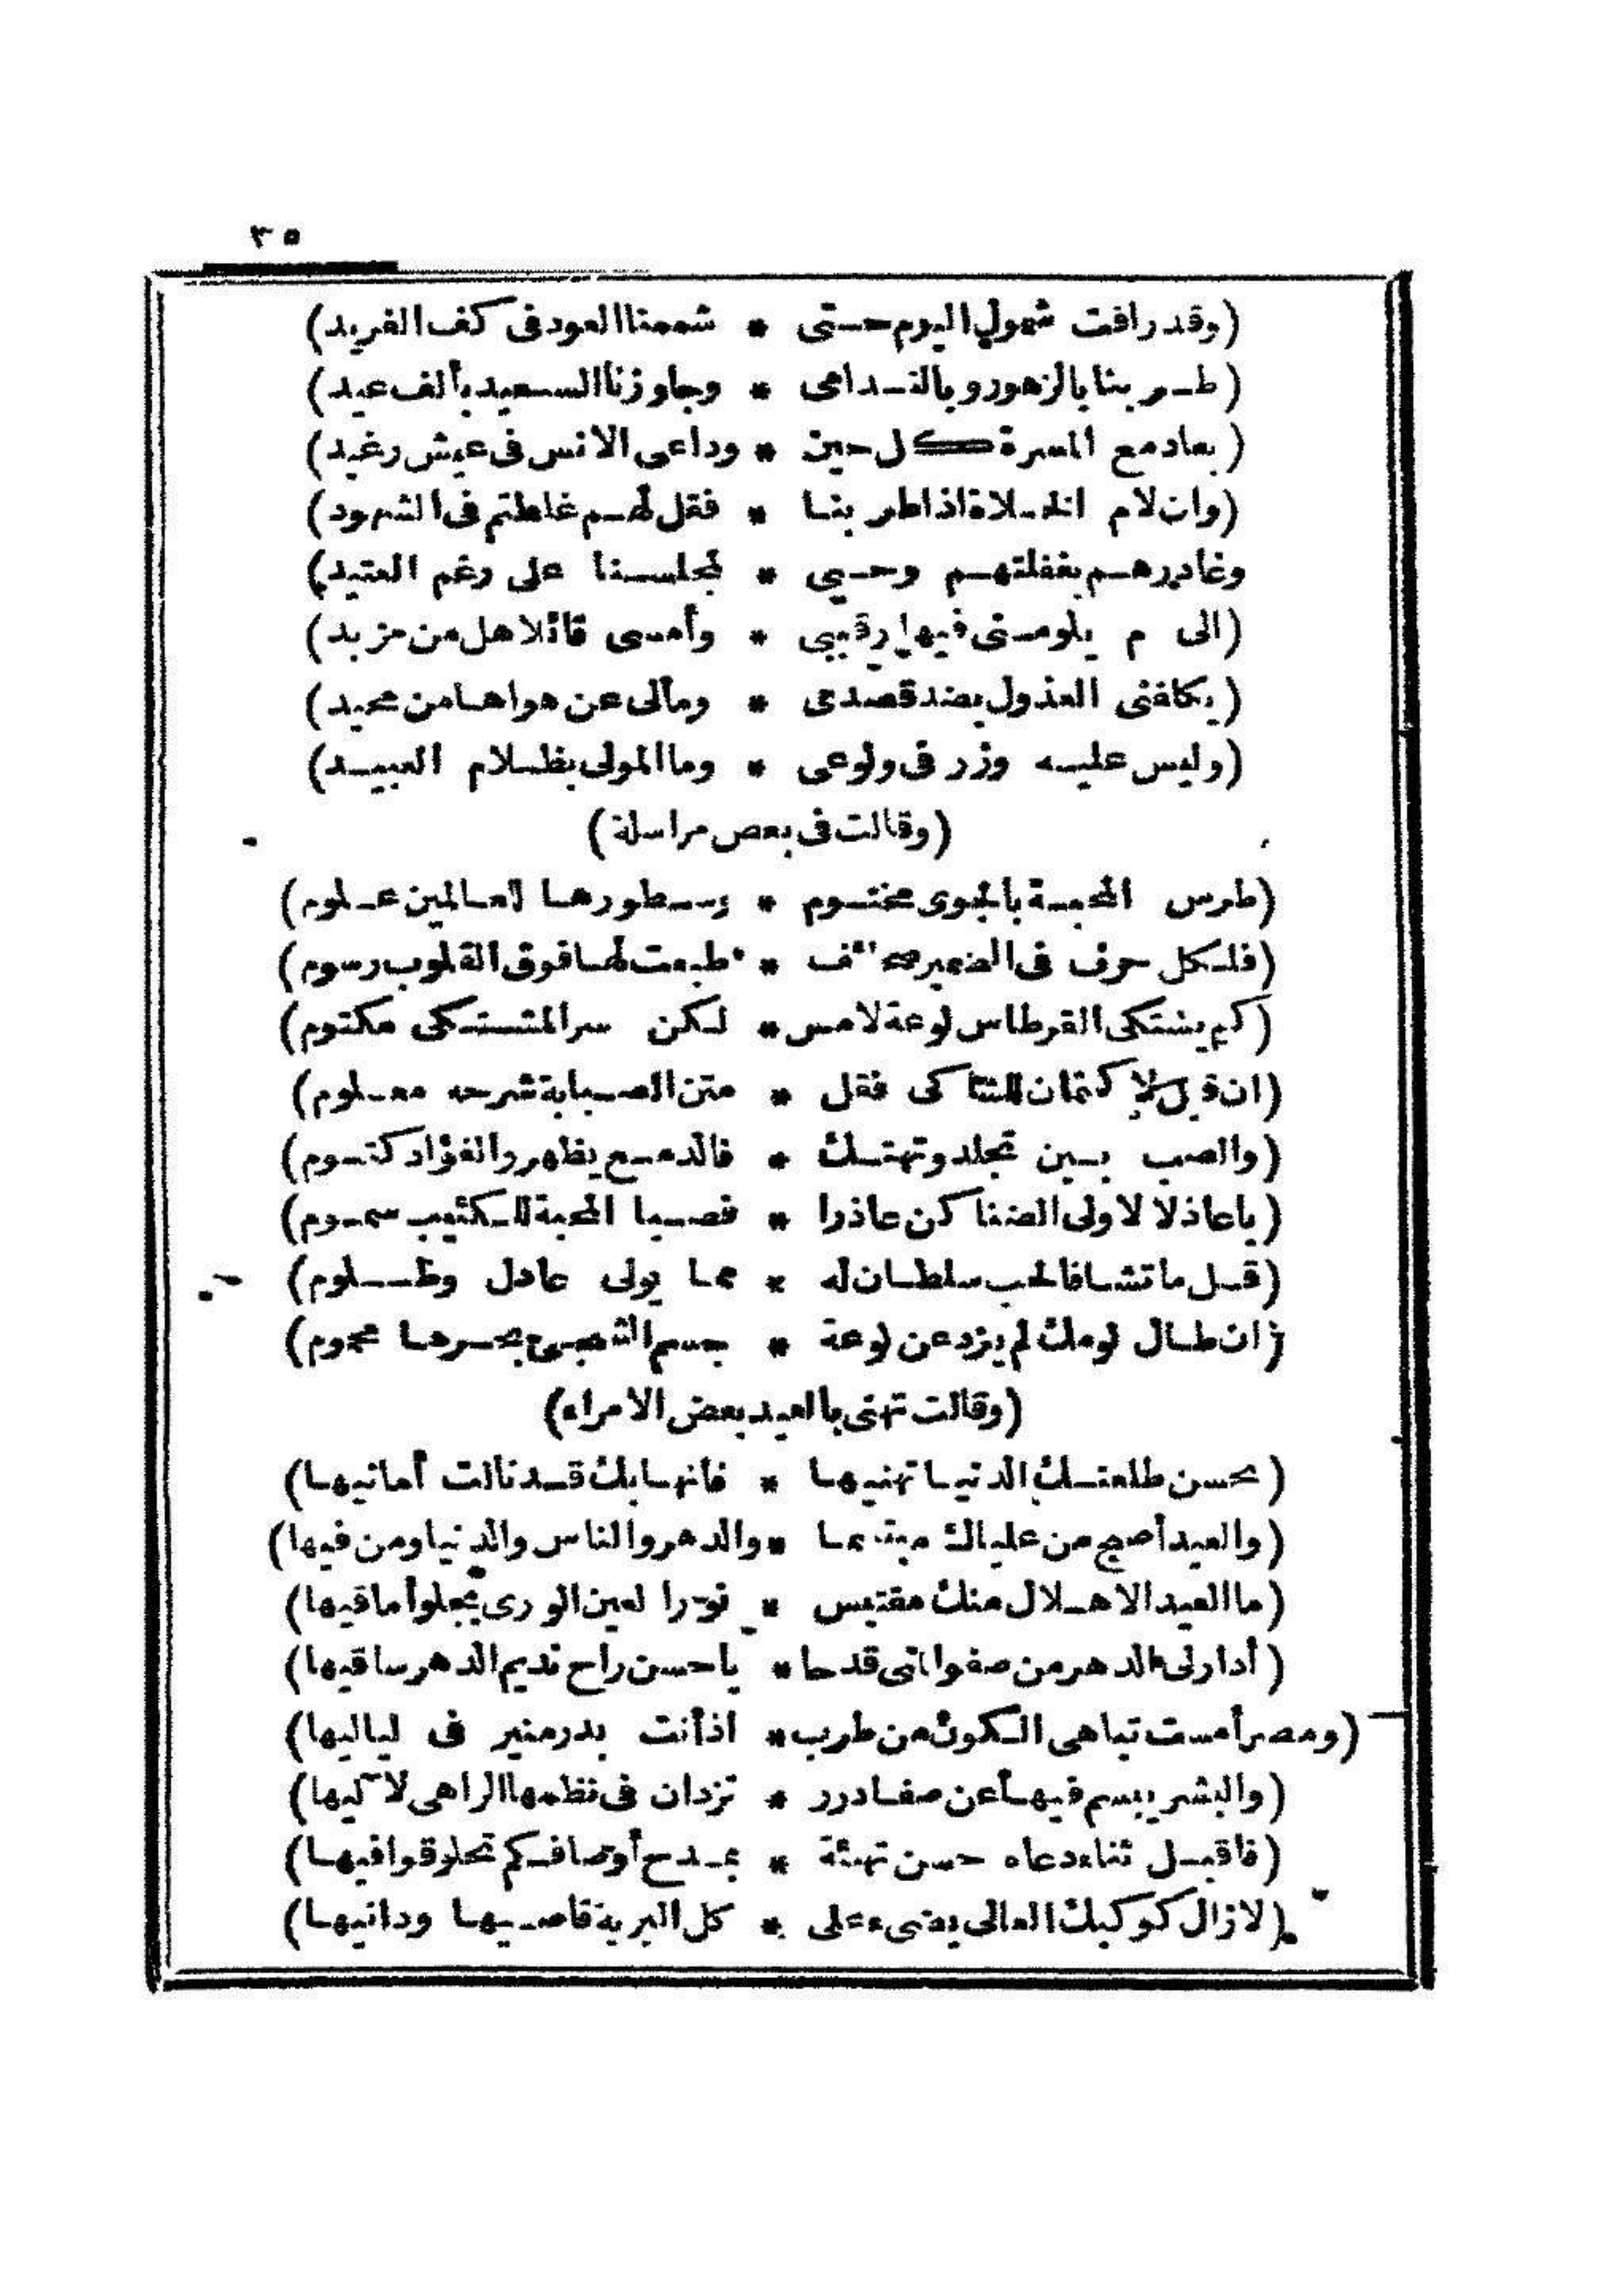 ٣٥
(وقد راقت شمول اليوم حتى * شممنا العود فى كف الفريد)
(طربنا بالزهور وبالندامى * وجاوزنا السعيد بألف عيد)
(بعاد مع المسرة كل حين * وداعى الانس فى عيش رغيد)
(وان لام الخلاة اذا طربنا * فقل لهم غلطتم فى الشهود)
وغادرهم بغفلتهم وحيى * لمجلسنا على رغم العتيد)
(الى م يلومنى فيها رقيبى * وأمسى قائلا هل من مزيد)
(يكافنى العذول بضد قصدى * ومالى عن هواها من محيد)
(وليس عليه وزر فى ولوعى * وما المولى بظلام العبيد)
(وقالت فى بعض مراسلة)
(طرس المحبة بالجوى مختوم * وسطورها للعالمين علوم)
(فلكل حرف فى الضمير صحائف * طبعت لها فوق القلوب رسوم)
(كم يشتكى القرطاس لوعة لامس * لكن سر المشتكى مكتوم)
(ان قيل لا كتمان للشاكى فقل * متن الصبابة شرحه معلوم)
(والصب بين تجلد وتهتك * فالدمع يظهر والفؤاد كتوم)
(ياعاذلا لاولى الضنا كن عاذرا * فصبا المحبة للكئيب سموم)
(قل ما تشا فالحب سلطان له * مما يولى عادل وظلوم)
(ان طال لومك لم يزد عن لوعة * جسم الشجى بحرها محموم)
(وقالت تهنى بالعيد بعض الامراء)
(بحسن طلعتك الدنيا تهنيها * فانها بك قد نالت أمانيها)
(والعيد أصبح من علياك مبتسما * والدهر والناس والدنيا ومن فيها)
(ما العيد الا هلال منك مقتبس * نورا لعين الورى يجلو أماقيها)
(أدار لى الدهر من صفو الهنى قدحا * ياحسن راح نديم الدهر ساقيها)
(ومصر أمست تباهى الكون من طرب * اذ أنت بدر منير فى لياليها)
(والبشر يبسم فيها عن صفا درر * تزدان فى نظمها الزاهى لآليها)
(فاقبل ثناء دعاه حسن تهنئة * بمدح أوصافكم تحلو قوافيها)
(لازال كوكبك العالى يضىء على * كل البرية قاصيها ودانيها)